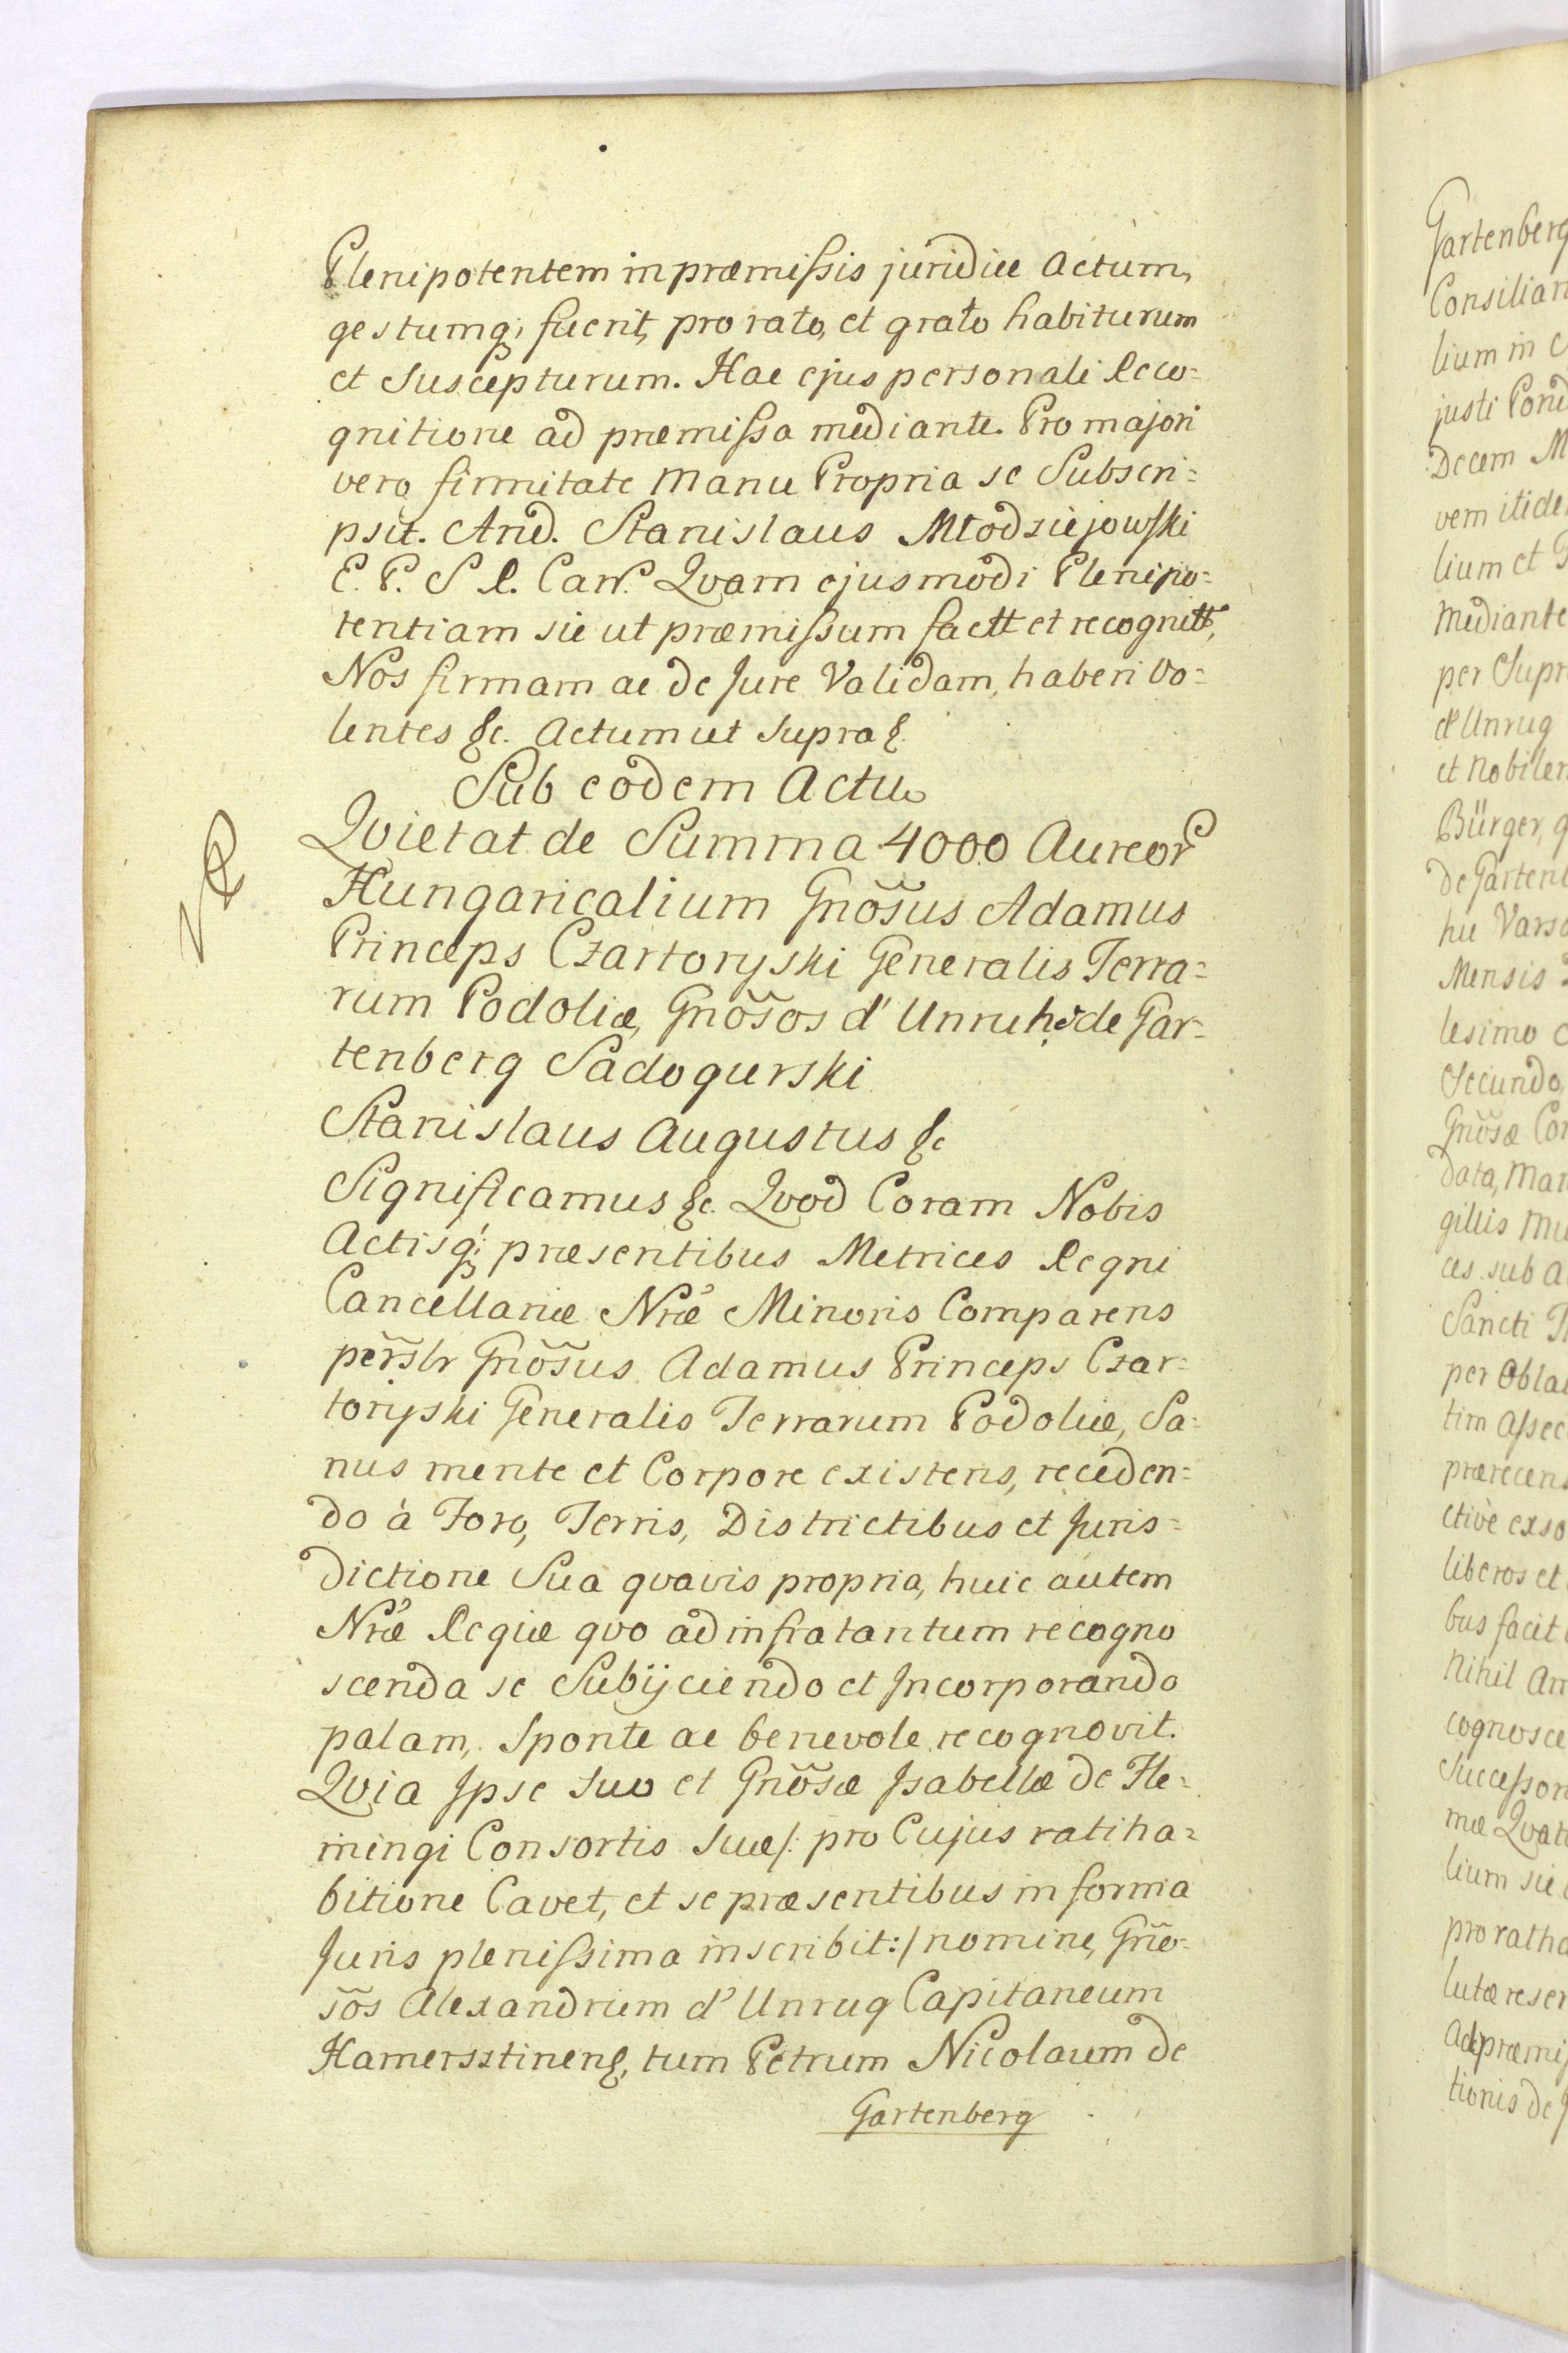 Plenipotentem in præmissis juridice actum,
gestumq; fuerit, pro rato, et grato habiturum
et suscepturum. Hac ejus personali Reco=
gnitione ad præmissa mediante. Pro majori
vero firmitate manu Propria se Subscri=
psit. And. Stanislaus Młodziejowski
E. P. S R. Canc. Qvam ejusmodi Plenipo=
tentiam sic ut præmissum factt et recognitt,
Nos firmam ac de Jure Validam, haberi vo=
lentes &c. Actum ut supra &.
Sub eodem Actu
Qvietat de Summa 4000 Aureor
Hungaricalium Gnõsus Adamus
Princeps Czartoryski Generalis Terra=
rum Podoliæ, Gnõsos d' Unruh, de Gar=
tenberg Sadogurski
Stanislaus Augustus &c
Significamus &c. Qvod Coram Nobis
Actisq; præsentibus Metrices Regni
Cancellariæ Nræ Minoris Comparens
perslr Gnõsus Adamus Princeps Czar=
toryski Generalis Terrarum Podoliæ, Sa=
nus mente et Corpore existens, receden=
do à Foro, Terris, Districtibus et Juris=
dictione Sua qvavis propria, huic autem
Nræ Regiæ qvo ad infra tantum recogno
scenda se Subijciendo et Incorporando
palam, sponte ac benevole recognovit.
Qvia Ipse suo et Gnõsæ Isabellæ de Fle=
mingi Consortis suæ/: pro Cujus ratiha=
bitione Cavet, et se præsentibus in forma
Juris plenissima inscribit:/ nomine, Gño=
sõs Alexandrum d' Unrug Capitaneum
Hamersztinen&, tum Petrum Nicolaum de
Gartenberg
Gartenberg
Consiliar
lium in
justi Pond
Decem M
vem itide
lium et
mediante
per Supr
d'Unrug
et Nobilem
Bürger, q
de Gartenb
hic Varso
Mensis
lesimo
Secundo
Gnõsæ Con
data, Man
gillis mu
ces sub a
Sancti
per Oblat
tim assec
prærecens
ctivè exso
liberos et
bus facit
Nihil am
cognosce
Successor
mæ Qvat
lium sic
pro ratha
lutæ reser
Ad præmis
tionis de J